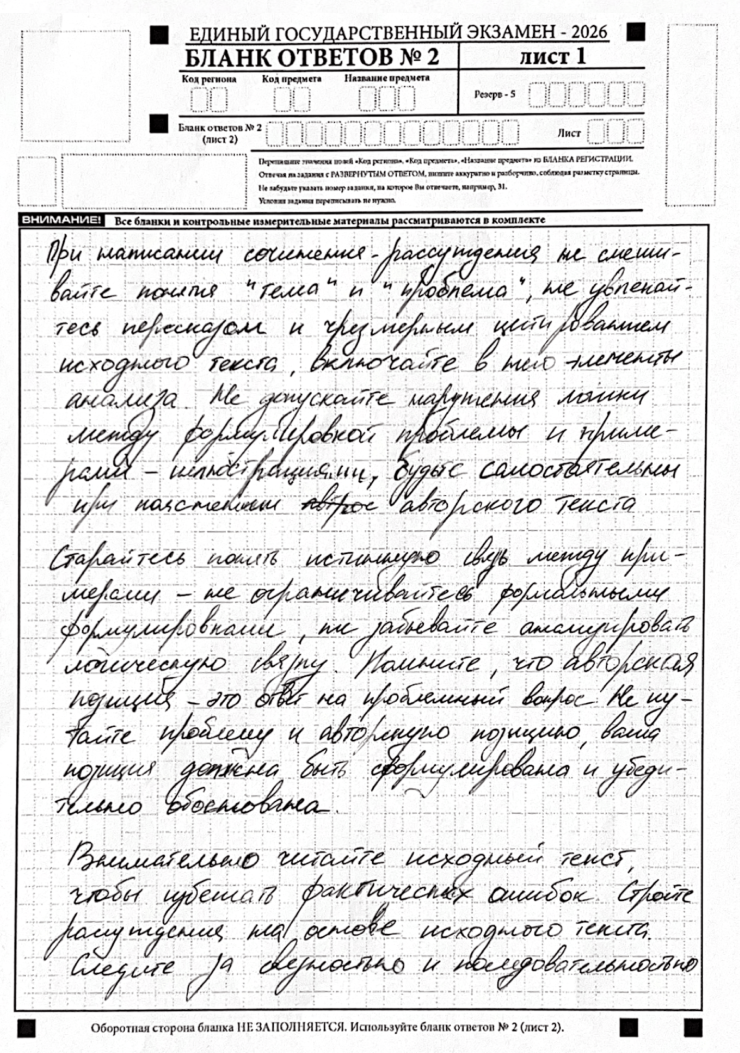 ЕДИНЫЙ ГОСУДАРСТВЕННЫЙ ЭКЗАМЕН - 2026
БЛАНК ОТВЕТОВ № 2 лист 1
Код региона Код предмета Название предмета
Резерв - 5
Бланк ответов № 2 (лист 2) Лист
Перепишите значения полей «Код региона», «Код предмета», «Название предмета» из БЛАНКА РЕГИСТРАЦИИ.
Отвечая на задания с РАЗВЕРНУТЫМ ОТВЕТОМ, пишите аккуратно и разборчиво, соблюдая разметку страницы.
Не забудьте указать номер задания, на которое Вы отвечаете, например, 31.
Условия задания переписывать не нужно.
ВНИМАНИЕ! Все бланки и контрольные измерительные материалы рассматриваются в комплекте
При написании сочинения-рассуждения не смеши-
вайте понятия "тема" и "проблема", не увлекай-
тесь пересказом и чрезмерным цитированием
исходного текста, включайте в него элементы
анализа. Не допускайте нарушения логики
между формулировкой проблемы и приме-
рами - иллюстрациями, будьте самостоятельны
при авторского текста
Старайтесь понять истинную связь между при-
мерами – не ограничивайтесь формальными
формулировками, не забывайте анализировать
логическую связку. Помните, что авторская
позиция – это ответ на проблемный вопрос. Не пу-
тайте проблему и авторскую позицию, ваша
позиция должна быть сформулирована и убеди-
тельно обоснована.
Внимательно читайте исходный текст,
чтобы избежать фактических ошибок. Стройте
рассуждения на основе исходного текста.
Следите за связностью и последовательностью
Оборотная сторона бланка НЕ ЗАПОЛНЯЕТСЯ. Используйте бланк ответов № 2 (лист 2).